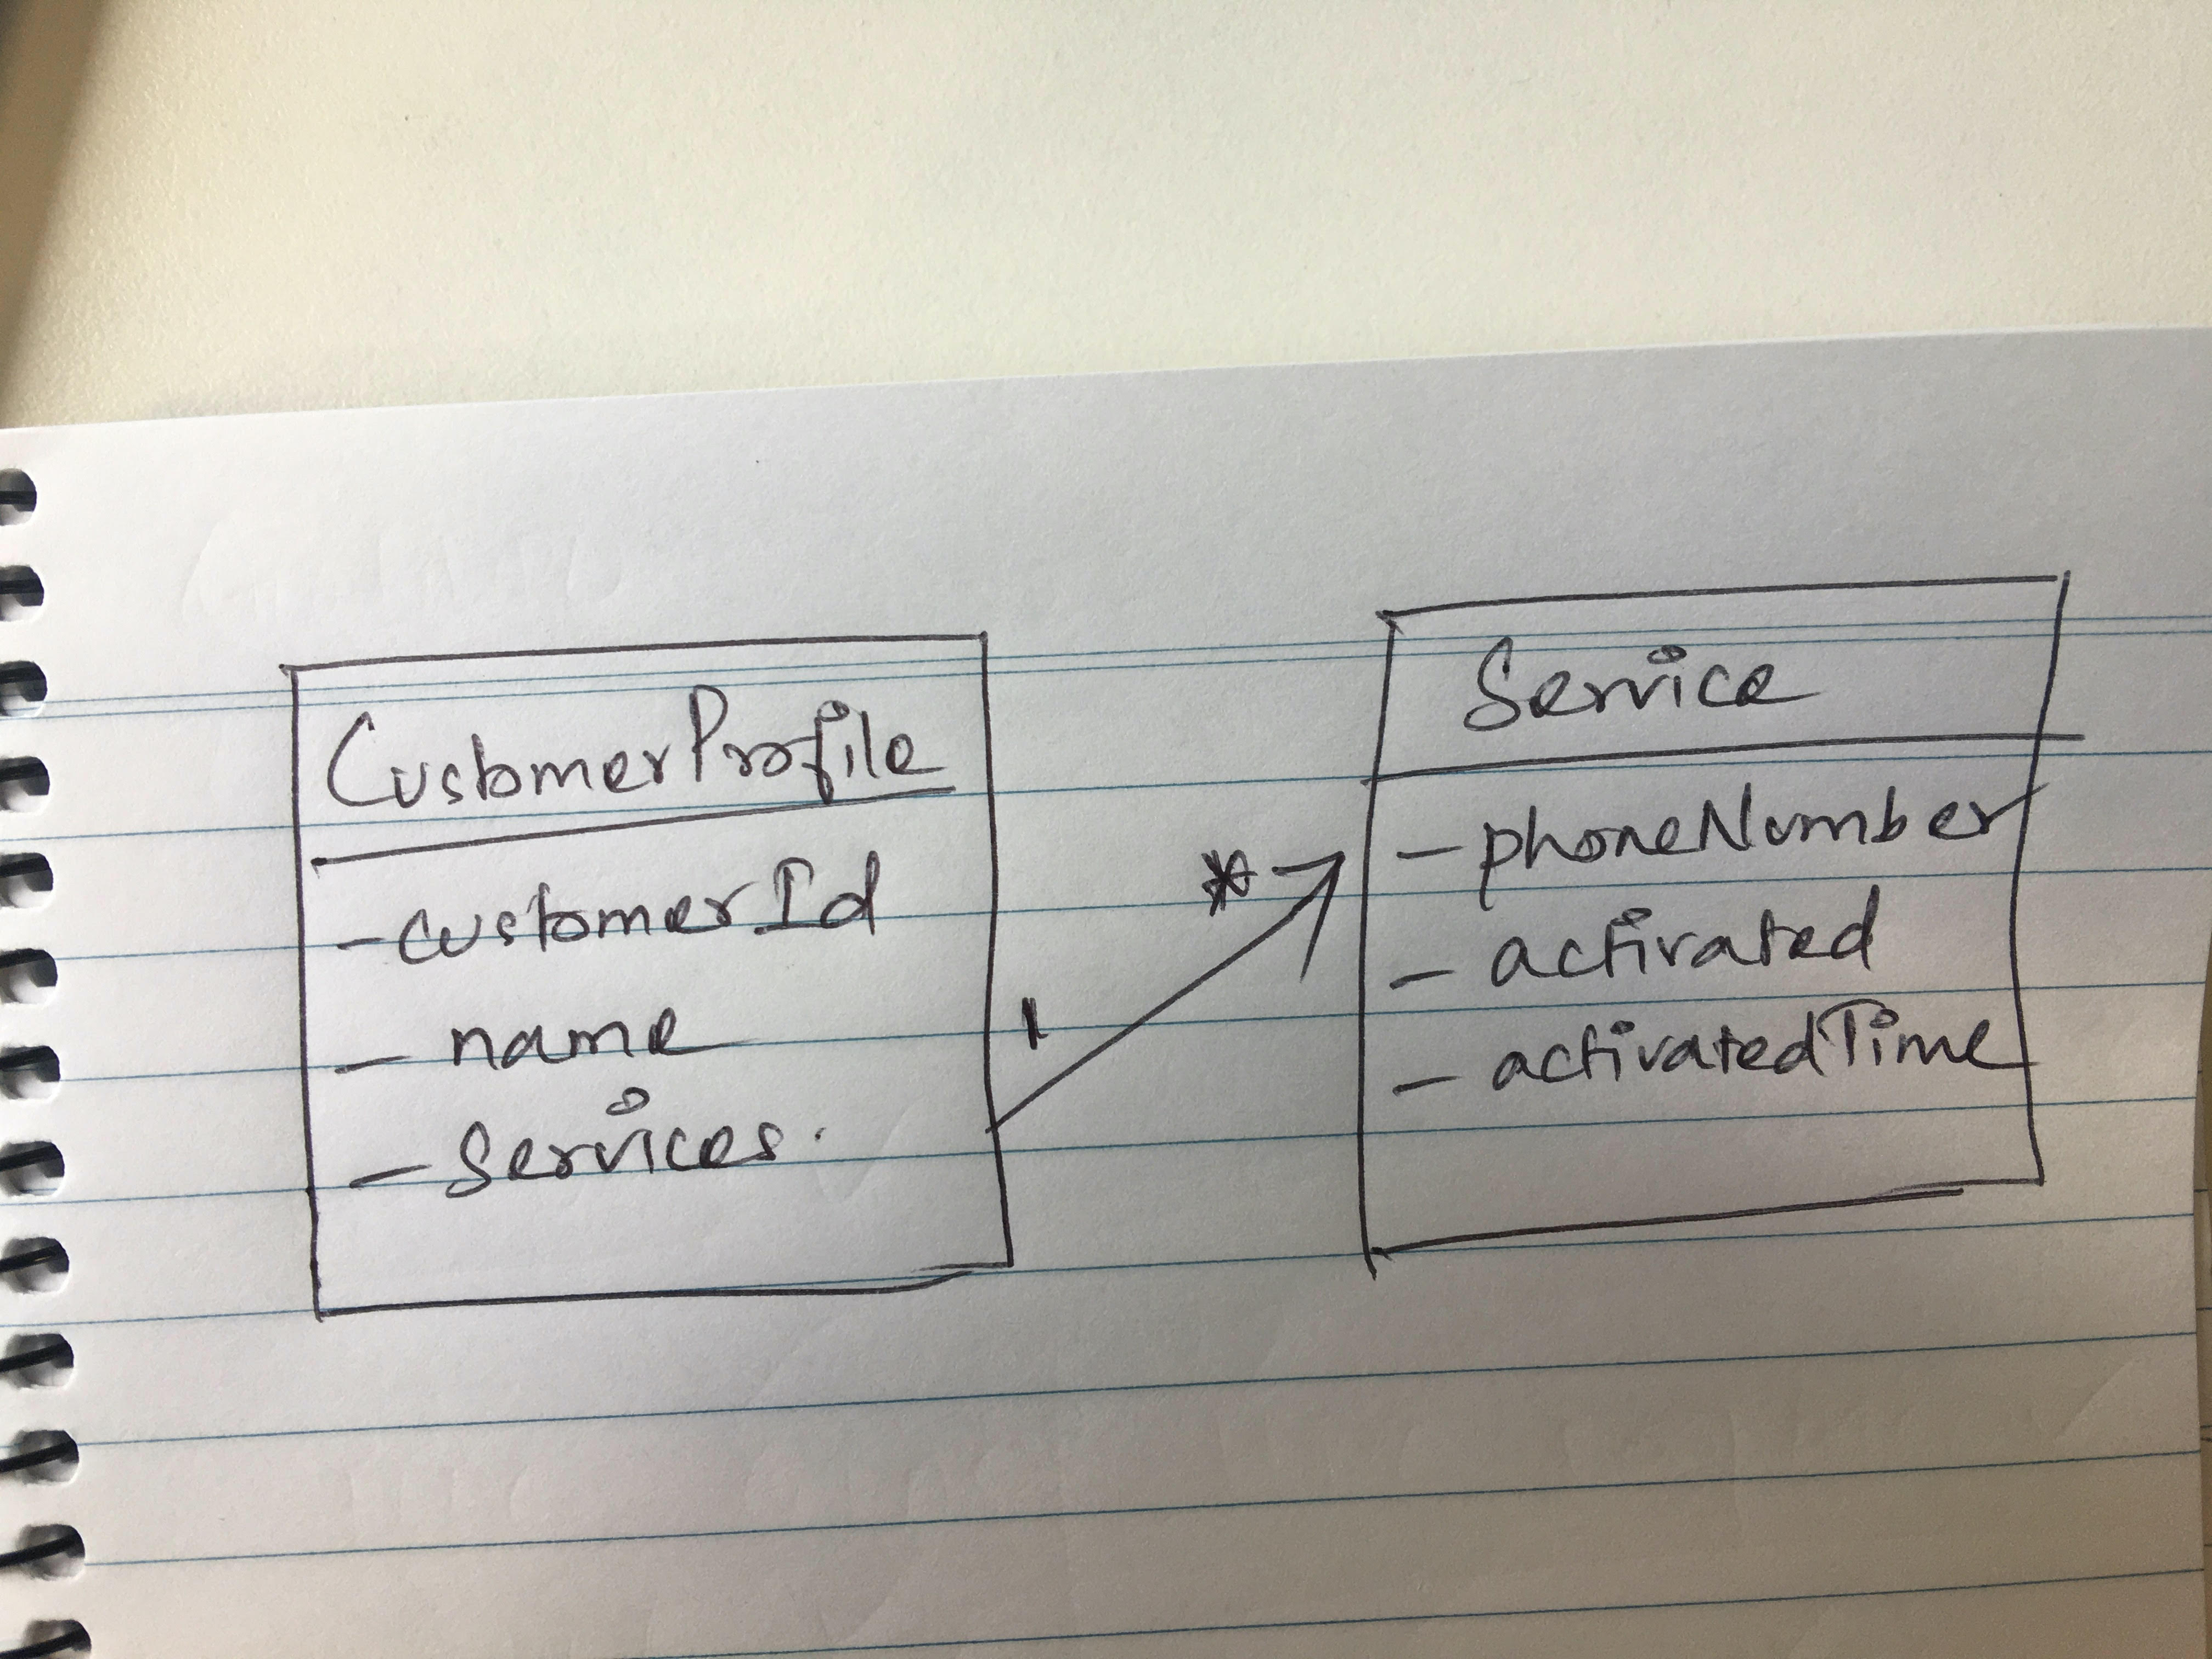 CustomerProfile
- customerId
- name
- Services.
1
*
Service
- phoneNumber
- activated
- activatedTime